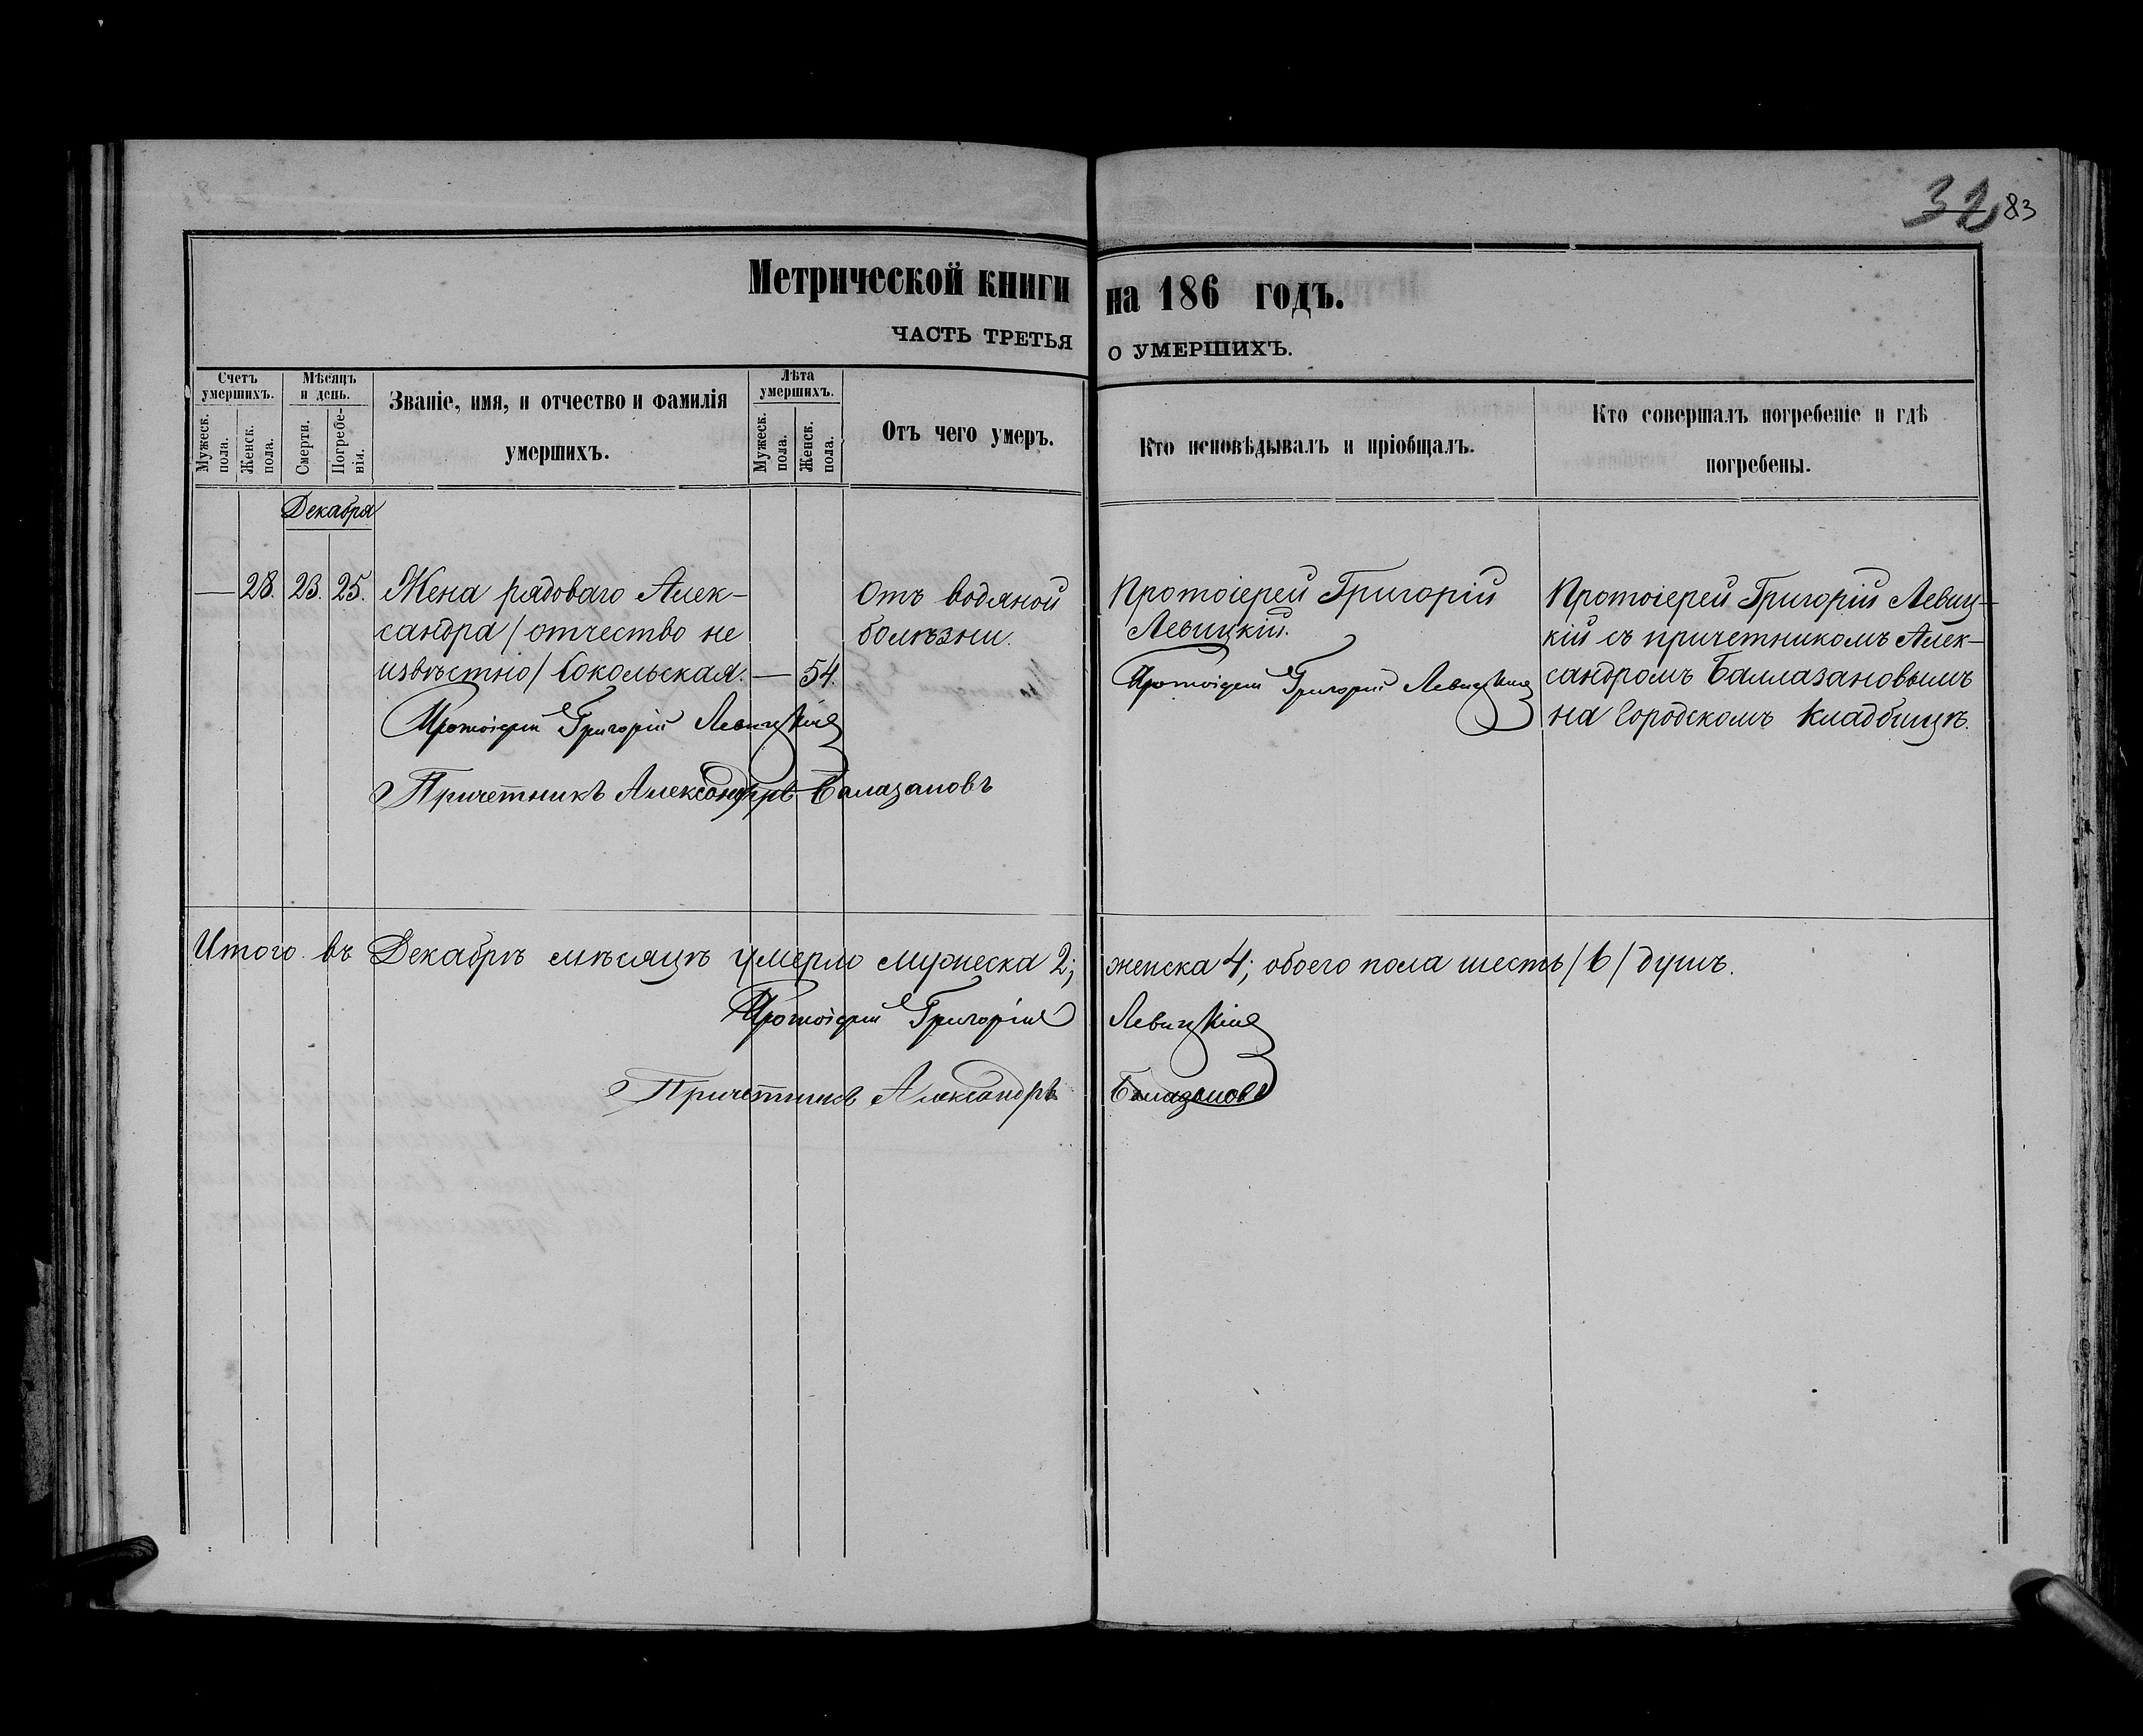 32 83
Метрической книги на 186 годъ.
ЧАСТЬ ТРЕТЬЯ О УМЕРШИХЪ.
Счетъ умершихъ.
Мужеск. пола.
Женск. пола.
Мѣсяцъ и день.
Смерти.
Погребе-
нія.
Званіе, имя, и отчество и фамилія
умершихъ.
Лѣта умершихъ.
Мужеск. пола.
Женск. пола.
Отъ чего умеръ.
Кто исповѣдывалъ и пріобщалъ.
Кто совершалъ погребеніе и гдѣ
погребены.
Декабря
— 28. 23. 25.
Жена рядоваго Алек-
сандра / отчество не
извѣстно / Сокольская. — 54.
Протоіерей Григорій Левицкій
Причетникъ Александръ Балазановъ
Отъ водяной
болѣзни.
Протоіерей Григорій
Левицкій.
Протоіерей Григорій Левицкій
Протоіерей Григорій Левиц-
кій съ причетникомъ Алек-
сандромъ Баллазановымъ
на Городскомъ кладбищѣ.
Итого въ Декабрѣ мѣсяцѣ умерло мужеска 2; женска 4; обоего пола шесть / 6 / душъ.
Протоіерей Григорій Левицкій
Причетникъ Александръ Балазановъ